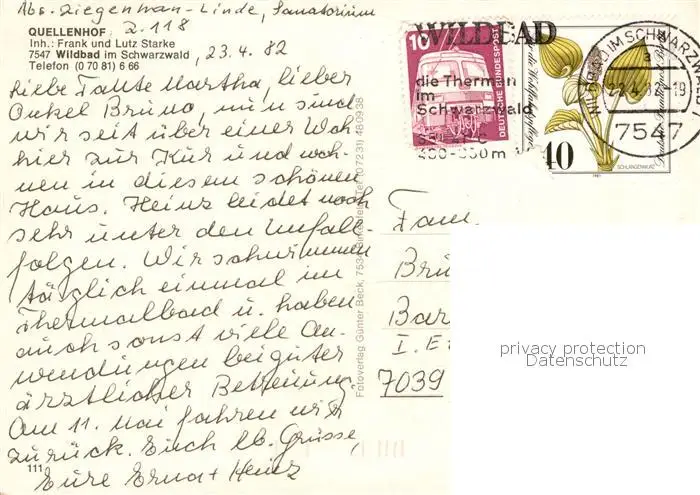 Abs. Ziegenhan-Linde, Sanatorium
QUELLENHOF Z. 118
Inh.: Frank und Lutz Starke
7547 Wildbad im Schwarzwald
Telefon (0 70 81) 6 66
23.4.82
Liebe Tante Martha, lieber
Onkel Bruno, nun sind
wir seit über einer Woche
hier zur Kur und woh-
nen in diesem schönen
Haus. Heinz leidet noch
sehr unter den Unfall-
folgen. Wir schwimmen
täglich einmal im
Thermalbad u. haben
auch sonst viele An-
wendungen bei guter
ärztlicher Betreuung.
Am 11. Mai fahren wir
zurück. Euch lb. Grüsse,
Eure Erna + Heinz
111
Fotoverlag Günter Beck, 7534 Birkenfeld, Tel. (0 7231) 480938
10
DEUTSCHE BUNDESPOST
WILDBAD
die Thermen
im
Schwarzwald
40
SCHLANGENWURZ
1981
WILDBAD IM SCHWARZWALD 1
a
-19
7547
Fam.
Br
Bar
I. E
7039
privacy protection
Datenschutz